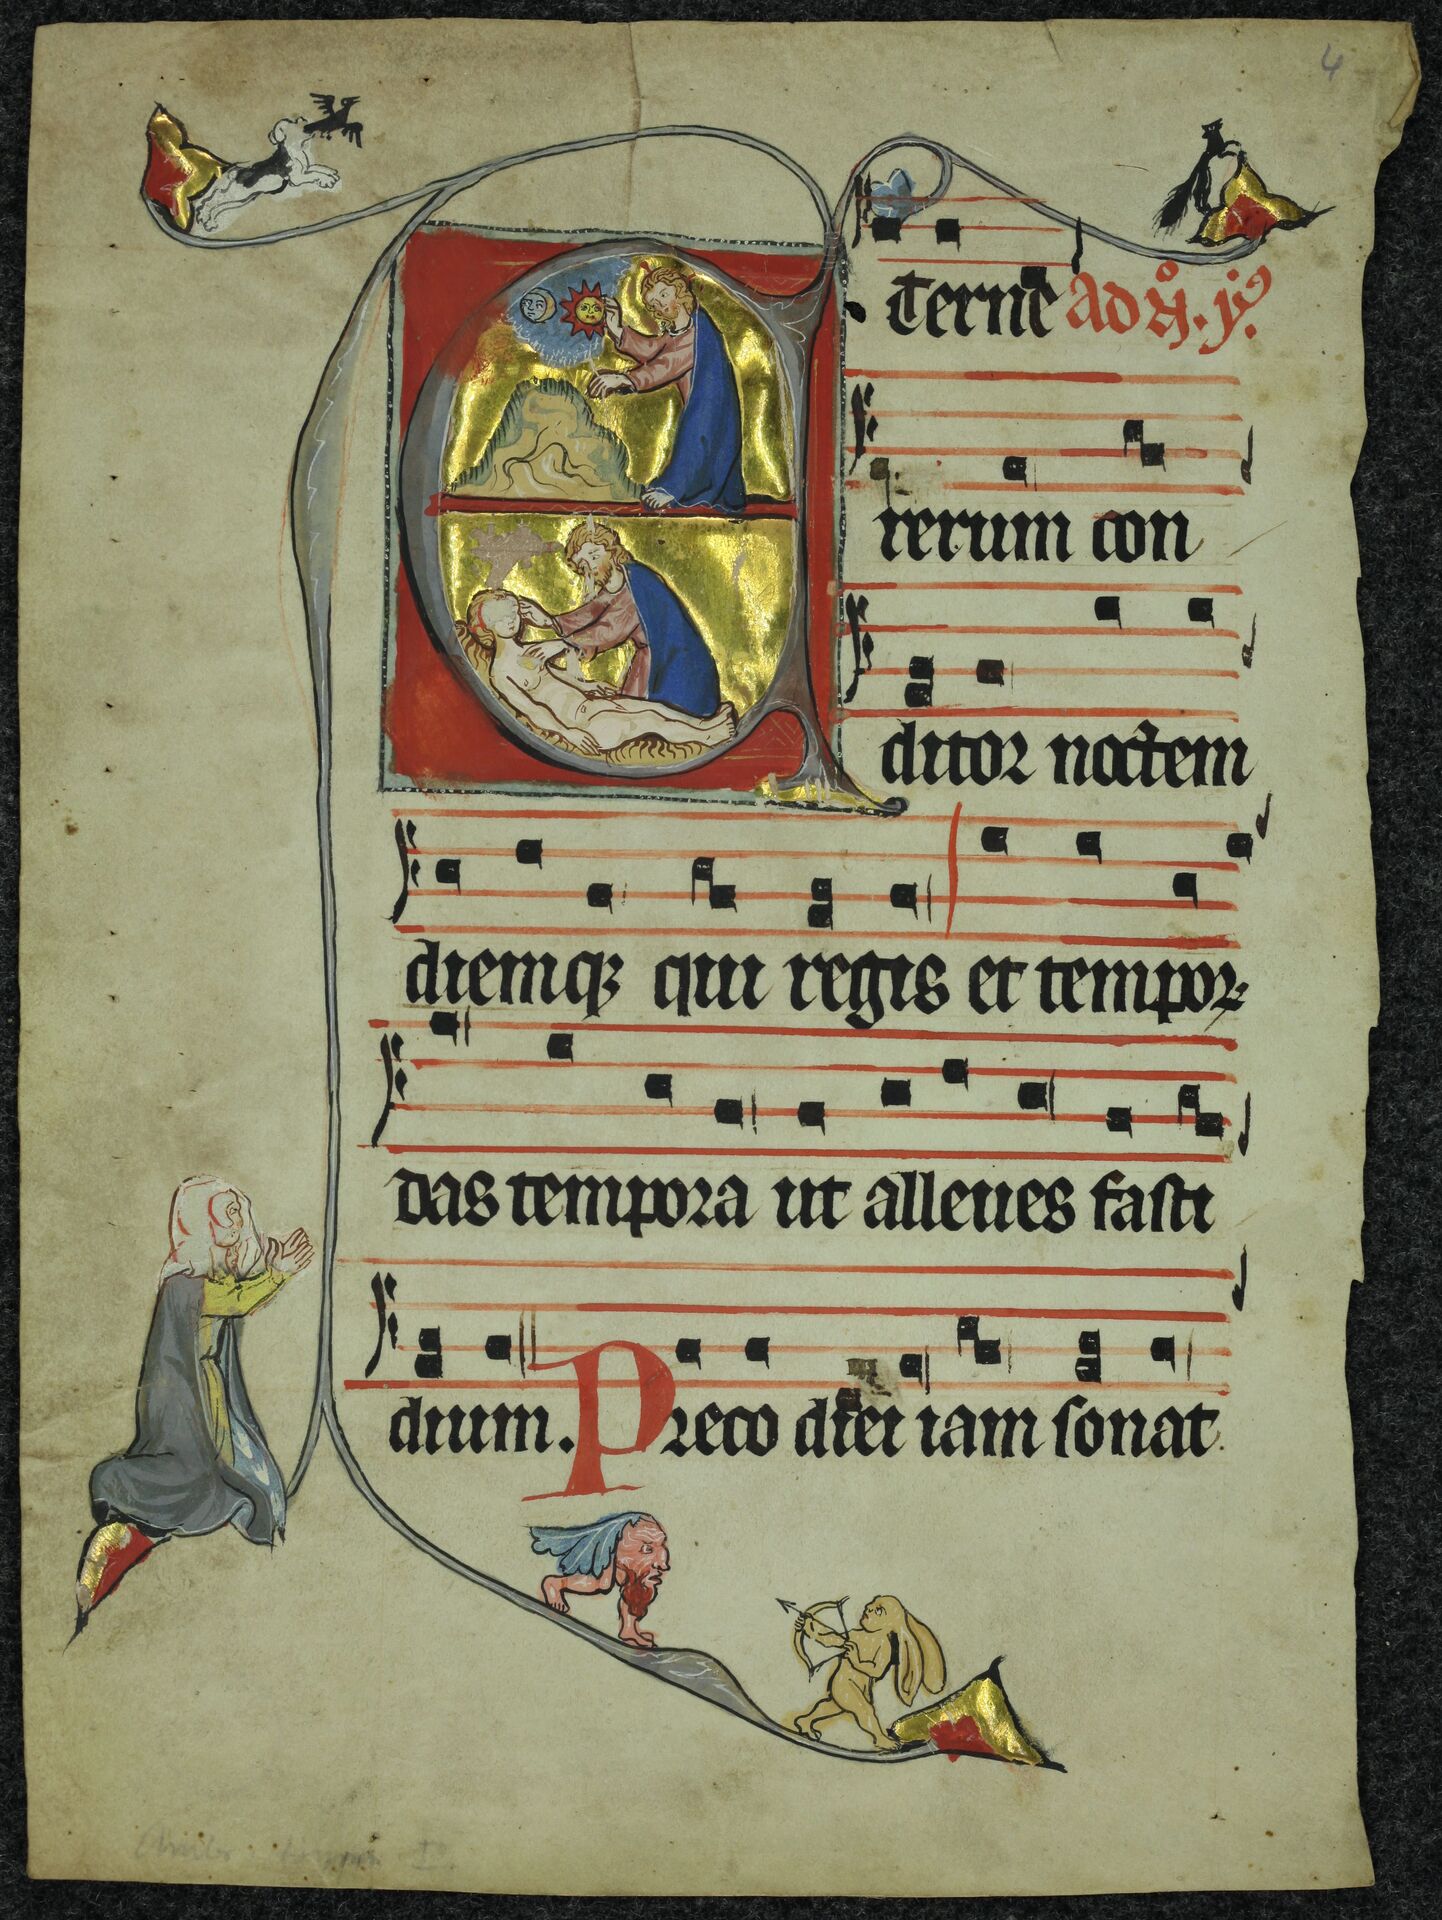 4
Eterne ad
rerum con
ditor noctem
diemqꝫ qui regis et tempoꝝ
das tempora ut alleues fasti
dium. Preco diei iam sonat